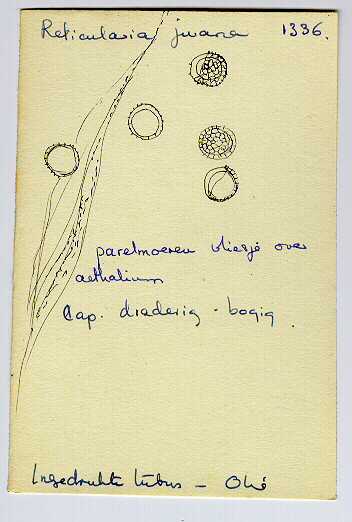 Reticularia jurana 1336.
parelmoeren vliesje over
aethalium
Cap. draderig - bogig.
Ingedrukte tubus - Olie